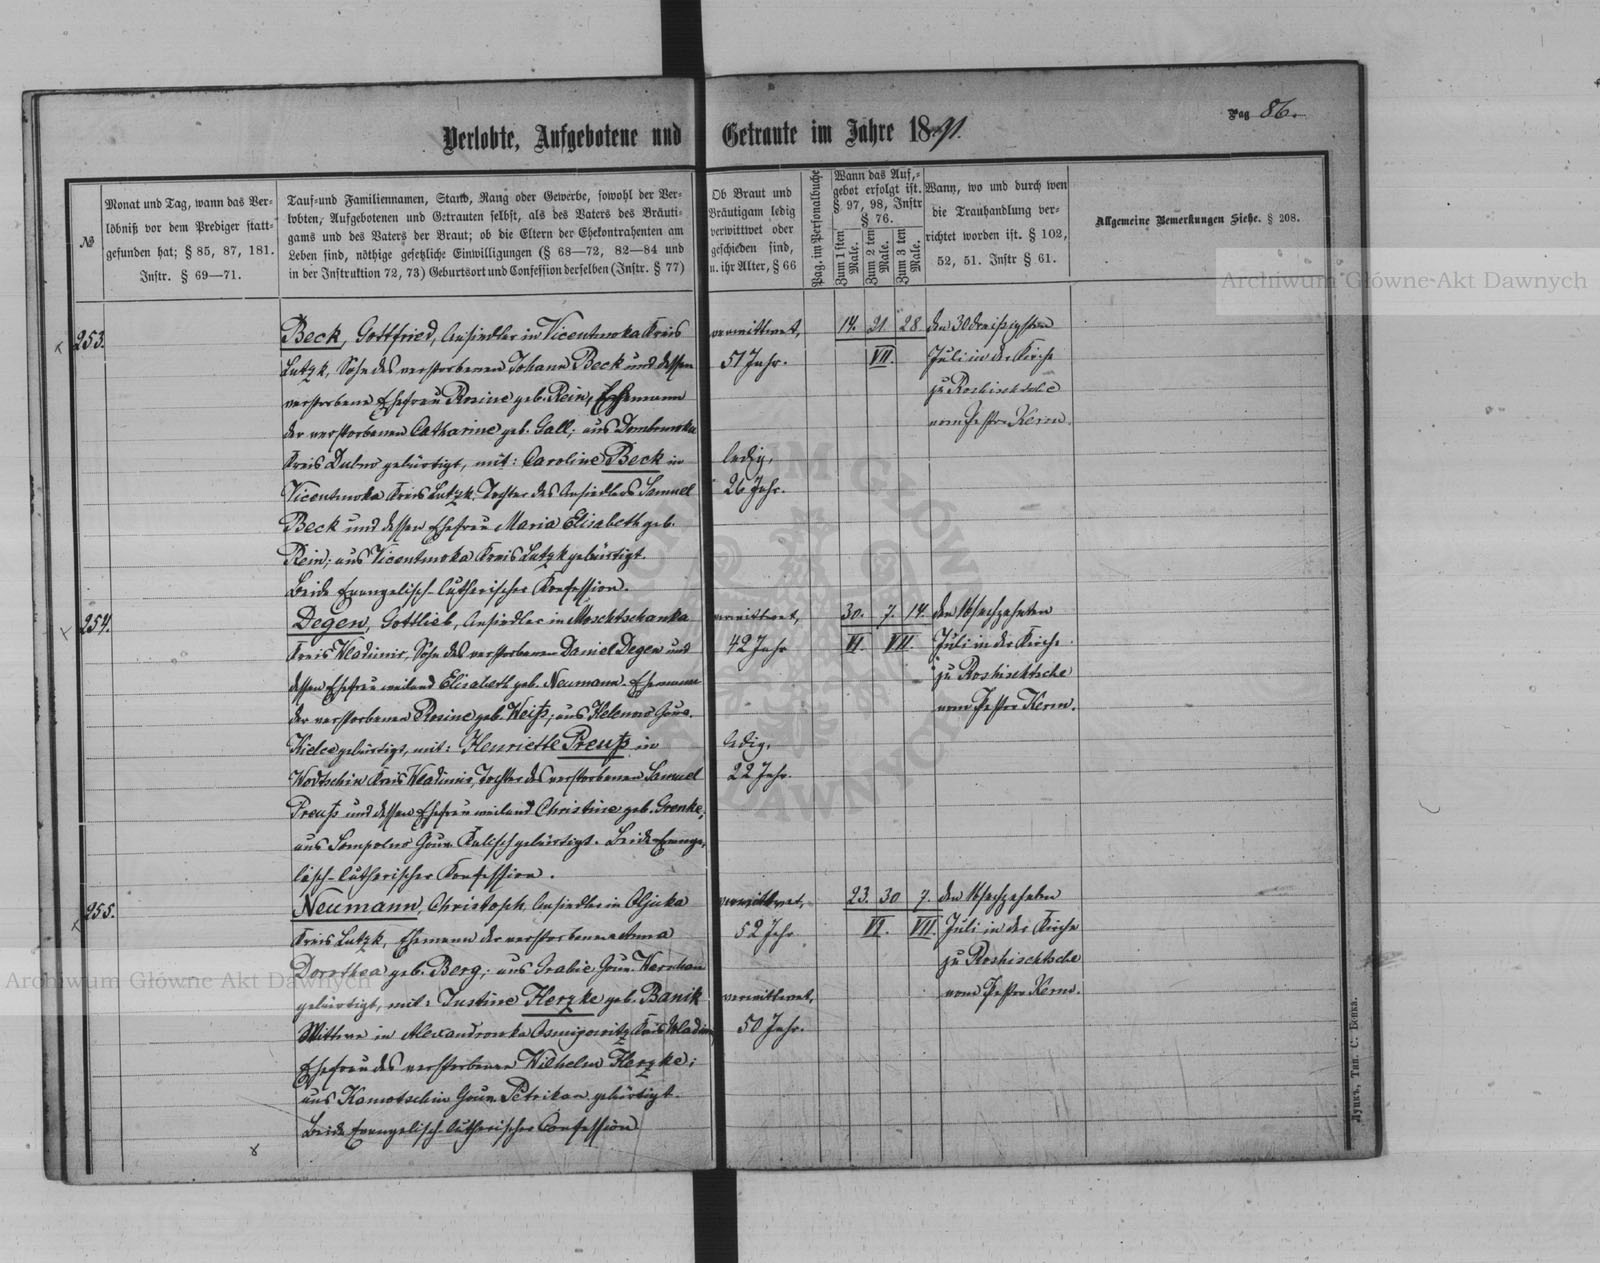 Pag 86.
Verlobte, Aufgebotene und Getraute im Jahre 1891.
№
Monat und Tag, wann das Ver-
löbniß vor dem Prediger statt-
gefunden hat; § 85, 87, 181.
Instr. § 69—71.
Tauf-und Familiennamen, Stand, Rang oder Gewerbe, sowohl der Ver-
lobten, Aufgebotenen und Getrauten selbst, als des Vaters des Bräuti-
gams und des Vaters der Braut; ob die Eltern der Ehekontrahenten am
Leben sind, nöthige gesetzliche Einwilligungen (§ 68—72, 82—84 und
in der Instruktion 72, 73) Geburtsort und Confession derselben (Instr. § 77)
Ob Braut und
Bräutigam ledig
verwittwet oder
geschieden sind,
u. ihr Alter, § 66
Pag. im Personalbuche
Wann das Auf-
gebot erfolgt ist.
§ 97, 98, Instr
§ 76.
Zum 1 sten Male.
Zum 2 ten Male.
Zum 3 ten Male.
Wann, wo und durch wen
die Trauhandlung ver-
richtet worden ist. § 102,
52, 51. Instr § 61.
Allgemeine Bemerkungen Siehe. § 208.
Archiwum Główne Akt Dawnych
253.
Beck, Gottfried, Ansiedler in Vicentowka Kreis
Lutzk, Sohn des verstorbenen Johann Beck und dessen
verstorbene Ehefrau Rosine geb. Rein, Ehemann
der verstorbenen Catharine geb. Gall; aus Dombrowka
Kreis Dubno gebürtigt, mit: Caroline Beck in
Vicentowka Kreis Lutzk, Tochter des Ansiedlers Samuel
Beck und dessen Ehefrau Maria Elisabeth geb.
Rein; aus Vicentowka Kreis Lutzk gebürtigt.
Beide Evangelisch-Lutherischer Konfession.
verwittwet,
51 Jahr.
ledig,
26 Jahr.
14. 21 28
VII.
den 30 dreißigsten
Juli in der Kirche
zu Roshischtsche
vom Pastor Kerm.
254.
Degen, Gottlieb, Ansiedler in Moschtschanka
Kreis Wladimir, Sohn des verstorbenen Daniel Degen und
dessen Ehefrau weiland Elisabeth geb. Neumann. Ehemann
der verstorbenen Rosine geb. Weiß; aus Helenno Gouv.
Kielce gebürtigt, mit: Henriette Preuß in
Wodtschin Kreis Wladimir, Tochter des verstorbenen Samuel
Preuß und dessen Ehefrau weiland Christine geb. Grenke,
aus Sompolno Gouv. Kalisch gebürtigt. Beide Evange-
lisch-Lutherischer Konfession.
verwittwet,
42 Jahr
ledig,
22 Jahr.
30. 7. 14.
VI. VII.
den 16 sechzehnten
Juli in der Kirche
zu Roshischtsche
vom Pastor Kerm.
255.
Neumann, Christoph, Ansiedler in Olginka
Kreis Lutzk, Ehemann der verstorbenen Anna
Dorothea geb. Berg; aus Grabie Gouv. Warschau
gebürtigt, mit: Justine Herzke geb. Banik
Wittwe in Alexandrowka Kreis Wladim.
Ehefrau des verstorbenen Wilhelm Herzke;
aus Kamotschin Gouv. Petrikau gebürtigt.
Beide Evangelisch-Lutherischer Confession
verwittwet,
52 Jahr
verwittwet,
50 Jahr.
23. 30 7.
VI. VII.
den 16 sechzehnten
Juli in der Kirche
zu Roshischtsche
vom Pastor Kerm.
Archiwum Główne Akt Dawnych
Луцкъ, Тип. С. Бенка.